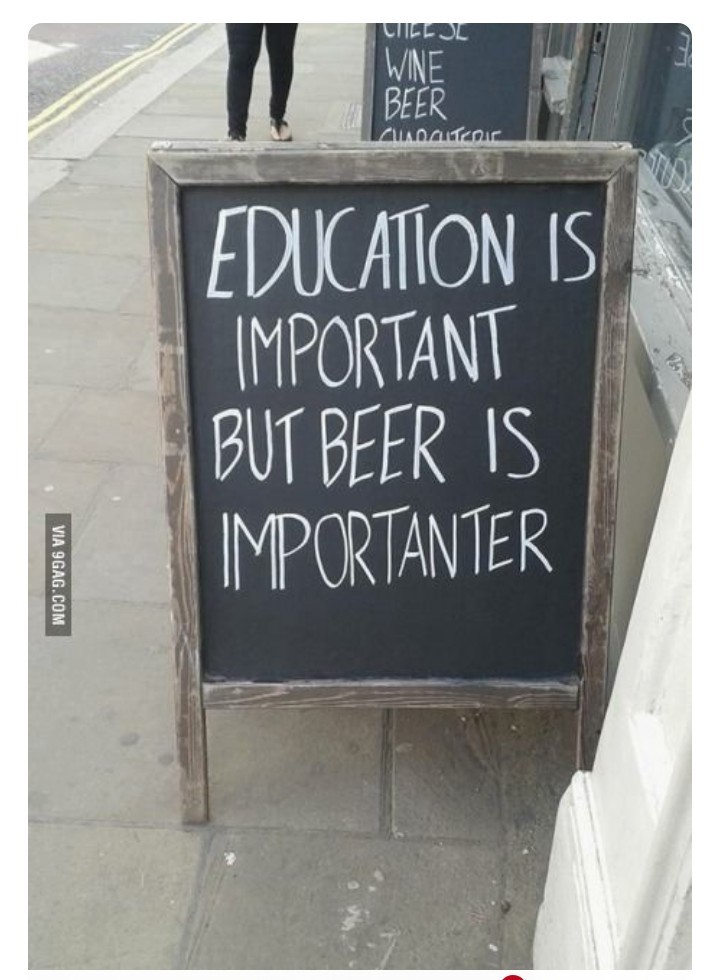 CHEESE
WINE
BEER
CHARCUTERIE
EDUCATION IS
IMPORTANT
BUT BEER IS
IMPORTANTER
VIA 9GAG.COM